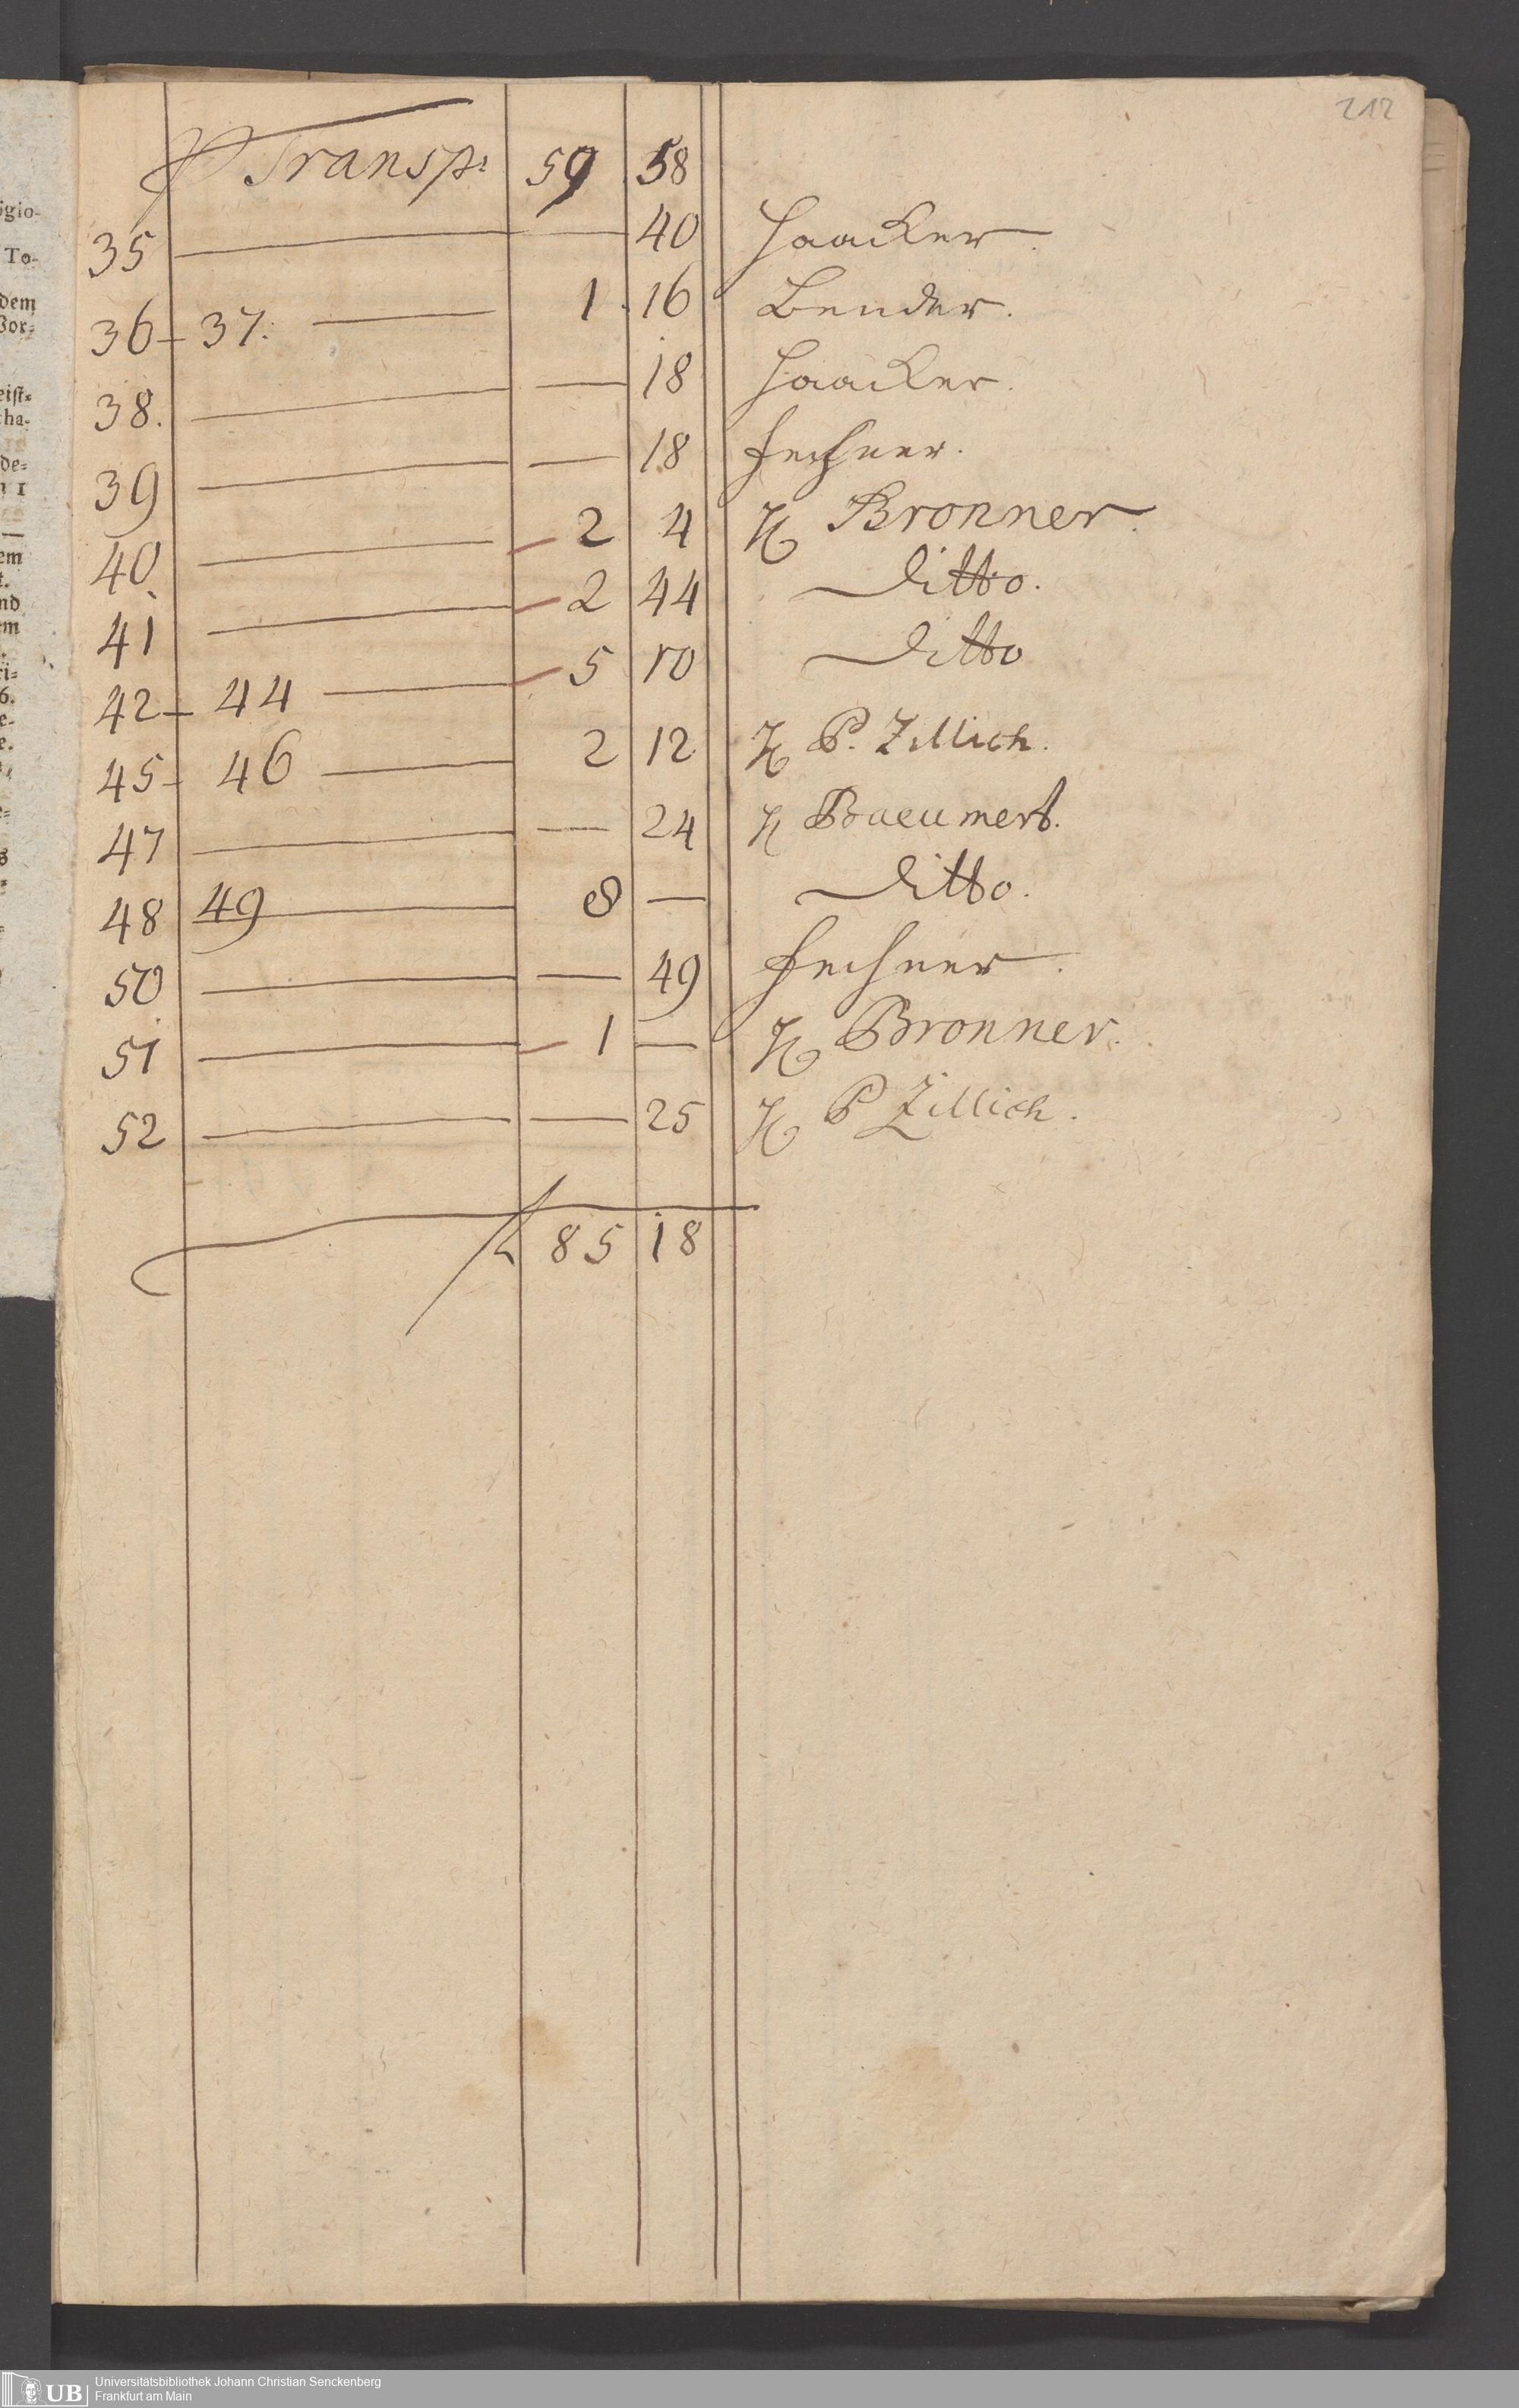 212
P Transp: 59 58
35 — — 40 Haacker.
36 - 37. — 1. 16 Bender.
38. — — 18 Haacker.
39 — — 18 Fechner.
40 — 2 4 H Bronner.
41 — 2 44 Ditto.
42 - 44 — 5 10 Ditto
45 - 46 — 2 12 H P. Zillich.
47 — — 24 H Baeumert.
48 49 — 8 — Ditto.
50 — — 49 Fechner.
51 — 1 — H Bronner.
52 — — 25 H P Zillich.
85 18
ögio-
To-
dem
Vor-
eist-
cha-
de-
em
nd
em
ri-
6.
e-
e.
UB
Universitätsbibliothek Johann Christian Senckenberg
Frankfurt am Main